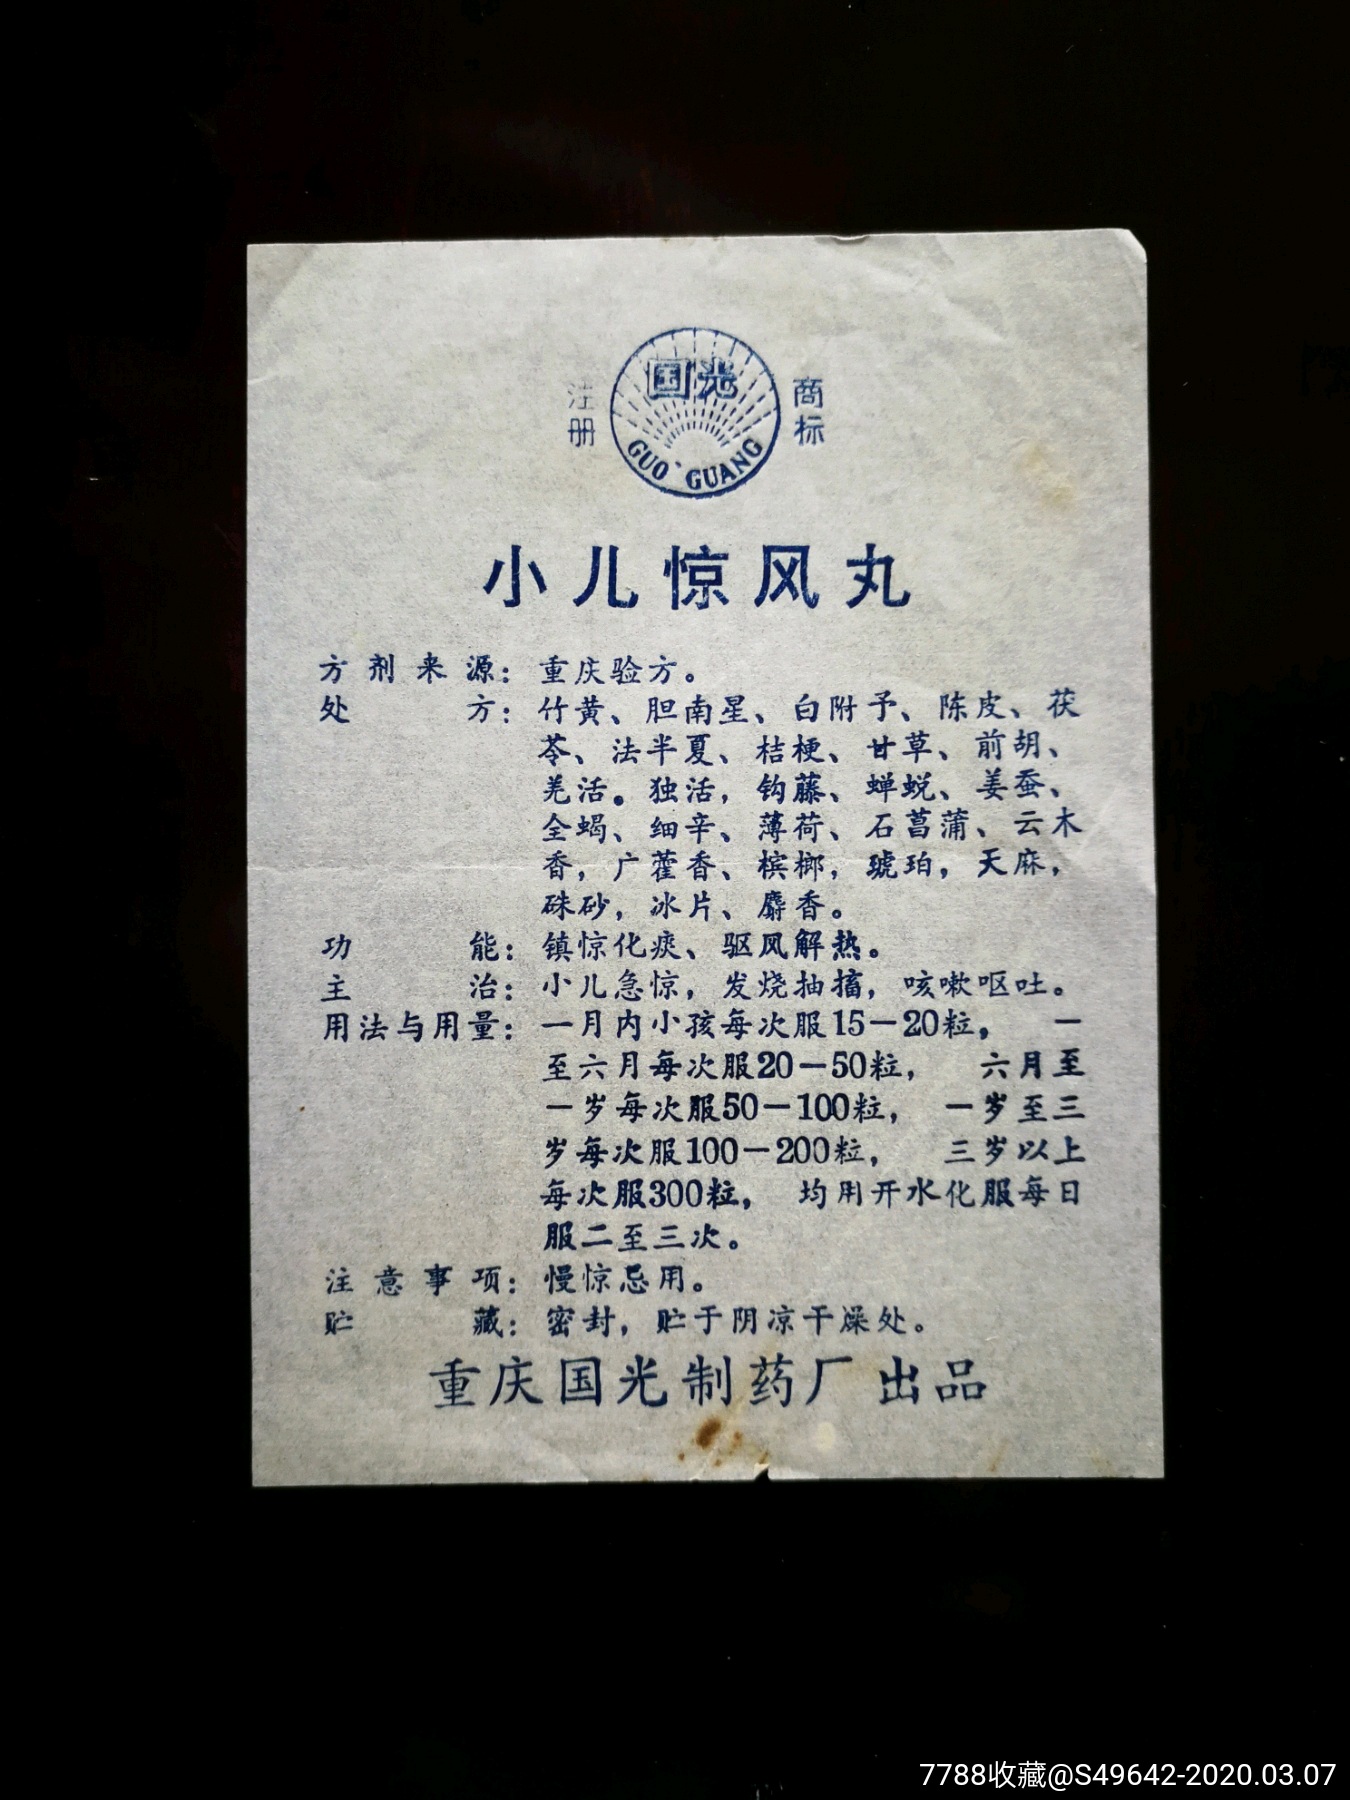 注册
国光
GUO GUANG
商标
小儿惊风丸
方剂来源：重庆验方。
处方：竹黄、胆南星、白附予、陈皮、茯
苓、法半夏、桔梗、甘草、前胡、
羌活。独活，钩藤、蝉蜕、姜蚕、
全蝎、细辛、薄荷、石菖蒲、云木
香，广藿香、槟榔，琥珀，天麻，
硃砂，冰片、麝香。
功能：镇惊化痰、驱风解热。
主治：小儿急惊，发烧抽搐，咳嗽呕吐。
用法与用量：一月内小孩每次服15－20粒， 一
至六月每次服20－50粒， 六月至
一岁每次服50－100粒， 一岁至三
岁每次服100－200粒， 三岁以上
每次服300粒， 均用开水化服每日
服二至三次。
注意事项：慢惊忌用。
贮藏：密封，贮于阴凉干燥处。
重庆国光制药厂出品
7788收藏@S49642-2020.03.07